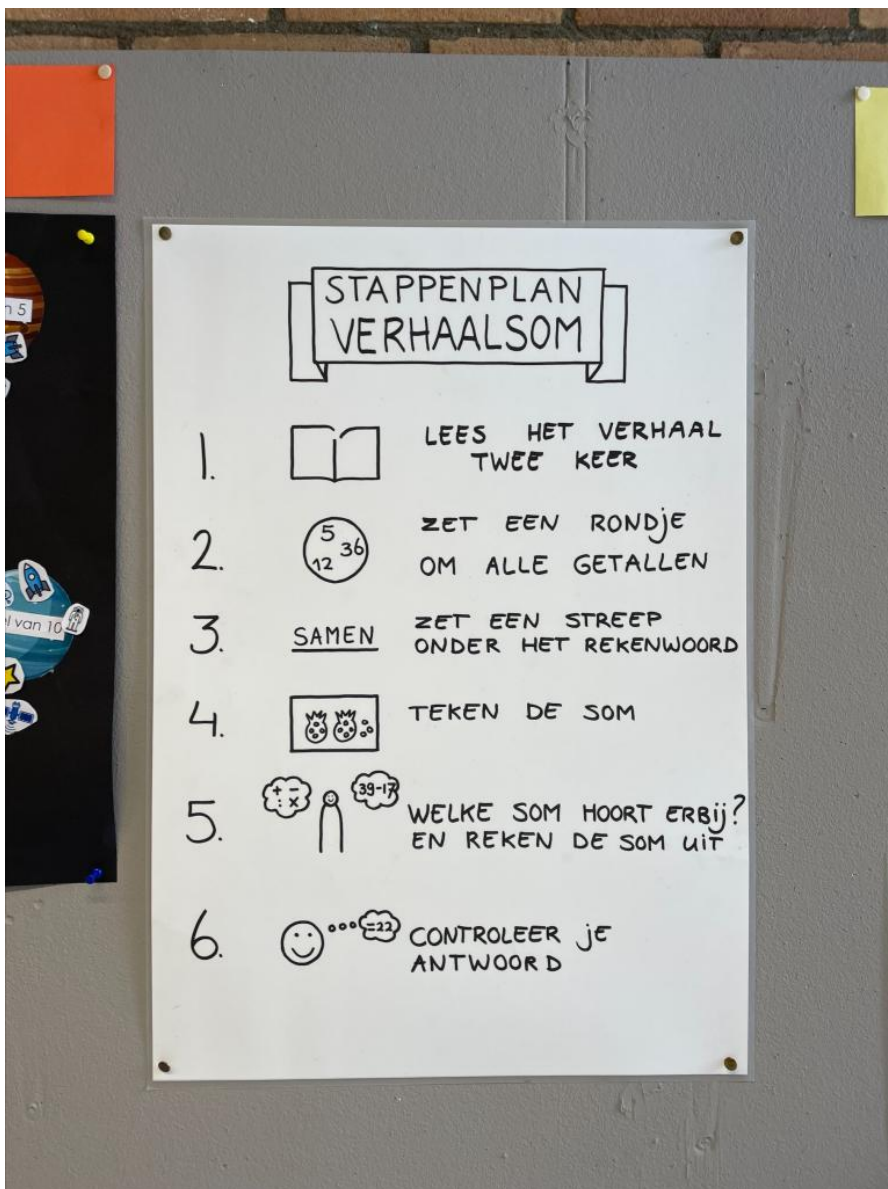 STAPPENPLAN
VERHAALSOM
1.
LEES HET VERHAAL
TWEE KEER
2.
5
36
12
ZET EEN RONDJE
OM ALLE GETALLEN
3.
SAMEN
ZET EEN STREEP
ONDER HET REKENWOORD
4.
TEKEN DE SOM
5.
+ -
: x
39-17
WELKE SOM HOORT ERBIJ?
EN REKEN DE SOM UIT
6.
=22
CONTROLEER JE
ANTWOORD
n 5
l van 10